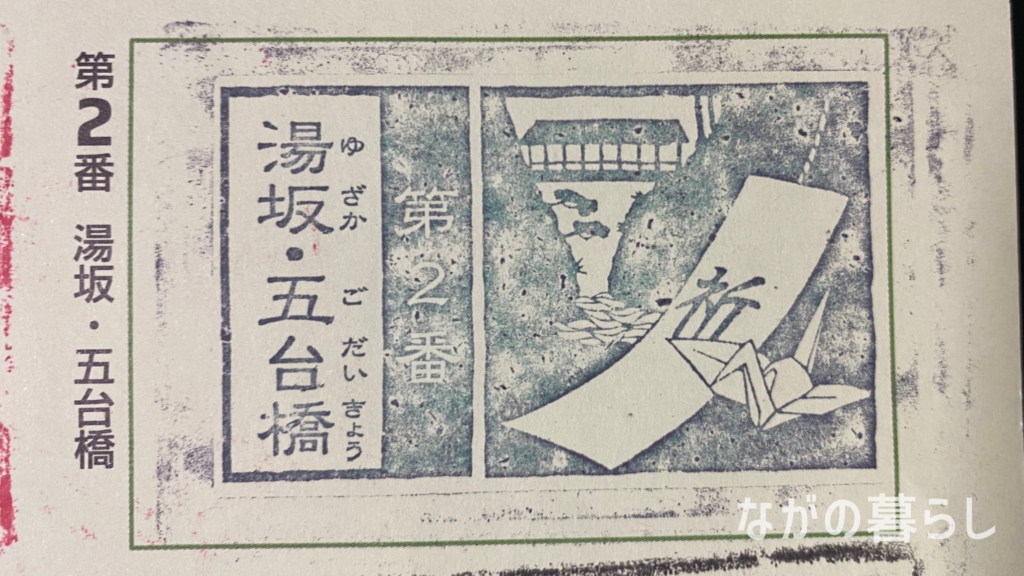 第2番 湯坂・五台橋
湯坂・五台橋
ゆざか ごだいきょう
第2番
祈
ながの暮らし